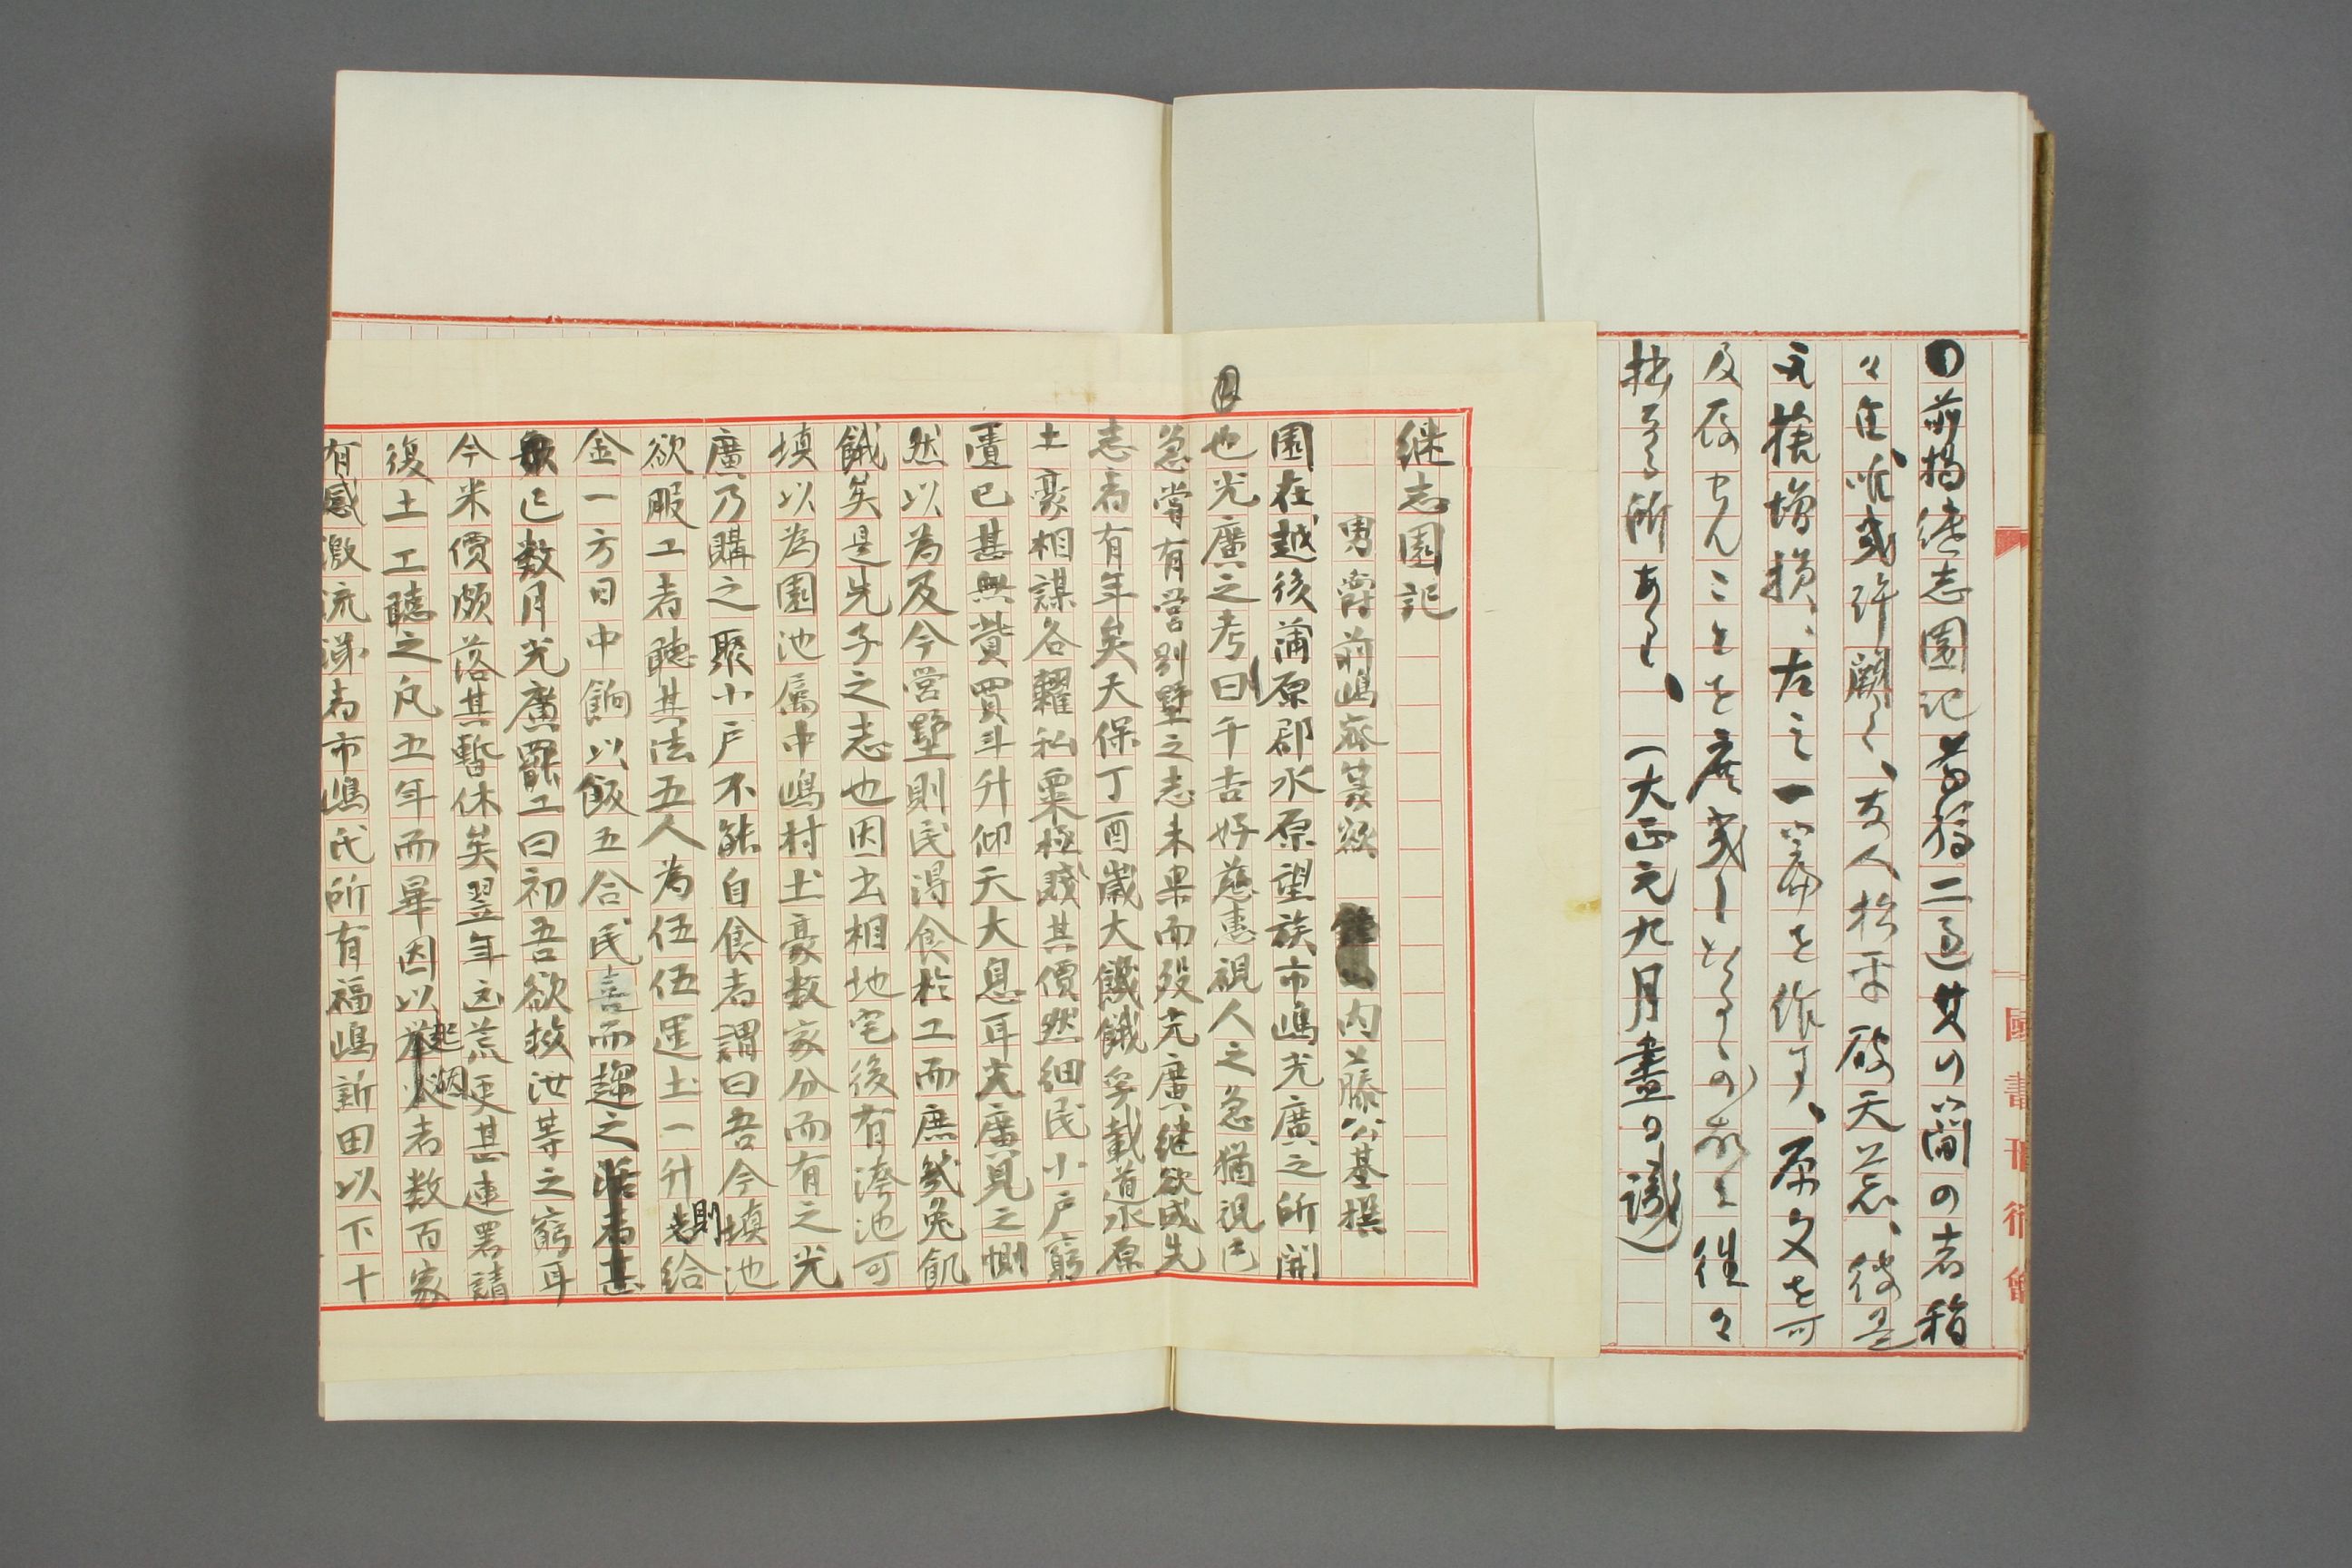 ●前掲継志園記前稿二通其の間の者稿
々在、唯或許闕く、友人松平破天荒、彼是
文捨増損、左之一篇を作す、原文を可
及存せんことを庶幾しヒるの故に往々
拙なる所あり、(大正元九月盡日識)
國書刊行會
継志園記
男爵前嶋密篆額 内藤公基撰
園在越後蒲原郡水原望族市嶋光廣之所開
也光廣之考曰千吉好慈惠視人之急猶視己
急嘗有營別墅之志未果而歿光廣継欲成先
志者有年矣天保丁酉歳大饑餓孚載道水原
土豪相謀各糶私粟極賤其價然細民小戶窮
匱已甚無貲買斗升仰天大息耳光廣見之惻
然以為及今營墅則民得食於工而庶幾免飢
餓矣是先子之志也因出相地宅後有洿池可
填以為園池屬中嶋村土豪数家分而有之光
廣乃購之聚小戶不能自食者謂曰吾今填池
欲服工者聽其法五人為伍伍運土一升則給
金一方日中餉以飯五合民喜而趨之
無亡数月光廣罷工曰初吾欲救汝等之窮耳
今米價頗落其暫休矣翌年凶荒更甚連署請
復土工聽之凡五年而畢因以起煙者数百家
有感激流涕者市嶋氏所有福嶋新田以下十